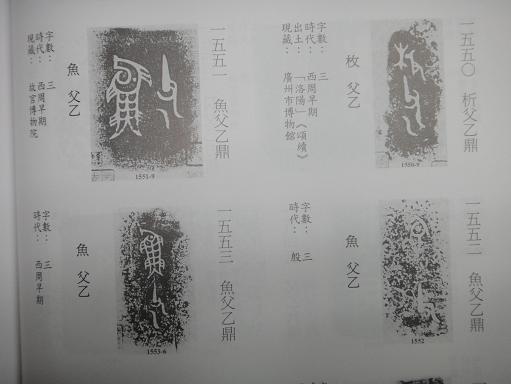 一五五〇 析父乙鼎
1550-9
枚 父乙
字數： 三
時代： 西周早期
出土： 「洛陽」《頌續》
現藏： 廣州市博物館
一五五一 魚父乙鼎
1551-9
魚 父乙
字數： 三
時代： 西周早期
現藏： 故宮博物院
一五五二 魚父乙鼎
1552
魚 父乙
字數： 三
時代： 殷
一五五三 魚父乙鼎
1553-6
魚 父乙
字數： 三
時代： 西周早期